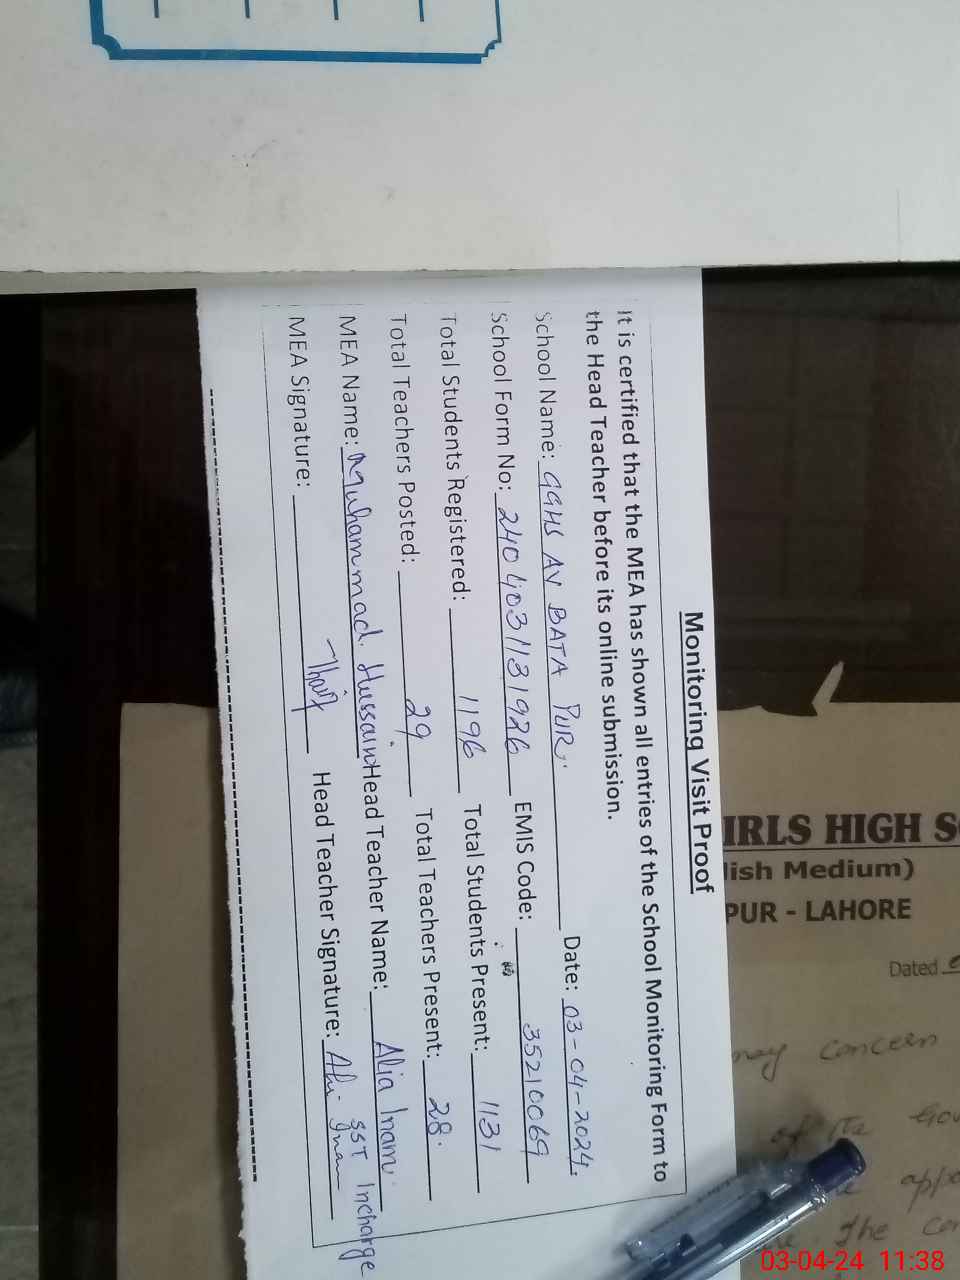 Monitoring Visit Proof
It is certified that the MEA has shown all entries of the School Monitoring Form to
the Head Teacher before its online submission.
School Name: GGHS AV BATA PUR. Date: 03-04-2024.
School Form No: 2404031131926 EMIS Code: 35210069
Total Students Registered: 1196 Total Students Present: 1131
Total Teachers Posted: 29 Total Teachers Present: 28.
MEA Name: Muhammad Hussain Head Teacher Name: Alia Inam
MEA Signature: Head Teacher Signature:
SST Incharge
IRLS HIGH S
lish Medium)
PUR - LAHORE
Dated
may concern
of its Gov
appo
The con
03-04-24 11:38